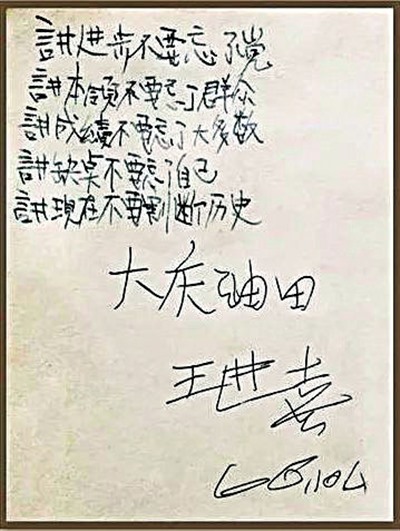 讲进步不要忘了党
讲本领不要忘了群众
讲成绩不要忘了大多数
讲缺点不要忘了自己
讲现在不要割断历史
大庆油田
王进喜